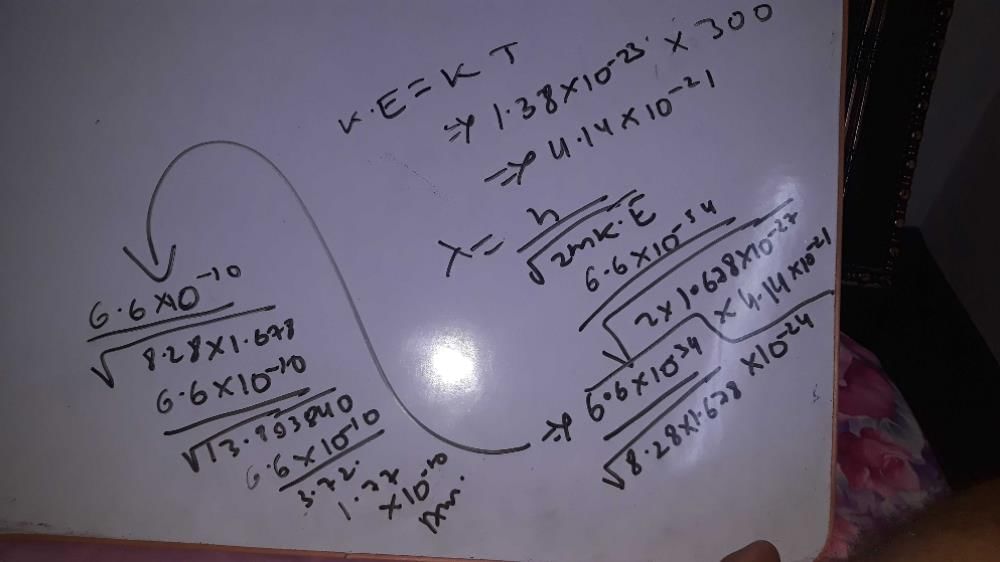 K.E=KT
⇒ 1.38×10⁻²³ × 300
⇒ 4.14×10⁻²¹
λ = h / √2mK.E
6.6×10⁻³⁴ / √2×1.678×10⁻²⁷ × 4.14×10⁻²¹
⇒ 6.6×10³⁴ / √8.28×1.678×10⁻²⁴
6.6×10⁻¹⁰ / √8.28×1.678
6.6×10⁻¹⁰ / √13.893840
6.6×10⁻¹⁰ / 3.72
1.77
×10⁻¹⁰
Ans.